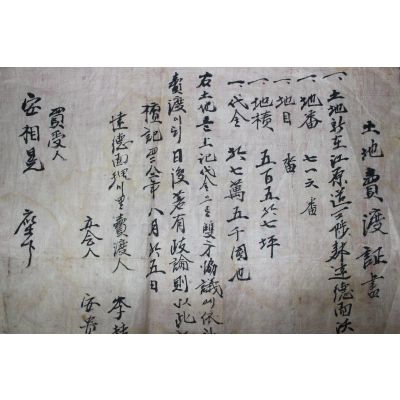 土地賣渡証書
一、土地所在江原道三陟郡遠德面沃
一、地番 七一六番
一、地目 畓
一、地積 五百五拾七坪
一、代金 拾七萬五千圜也
右土地를 上記代金으로 雙方協議에 依
賣渡이되 日後若有政論則以此
檀記 年八月拾五日
遠德面 里賣渡人 李
立會人 安
買受人
安相晃 座下